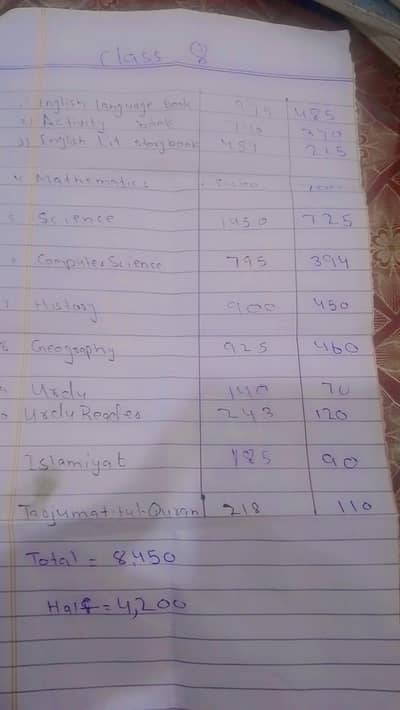 Class 8
1) English language book 975 485
2) Activity book 270
3) English Lit storybook 451 225
4 Mathematics
5 Science 1450 725
6 Computer Science 795 394
7 History 900 450
8 Geography 925 460
9 Urdu 140 70
Urdu Reader 243 120
Islamiyat 185 90
Tarjumatul-Quran 218 110
Total = 8,450
Half = 4,200